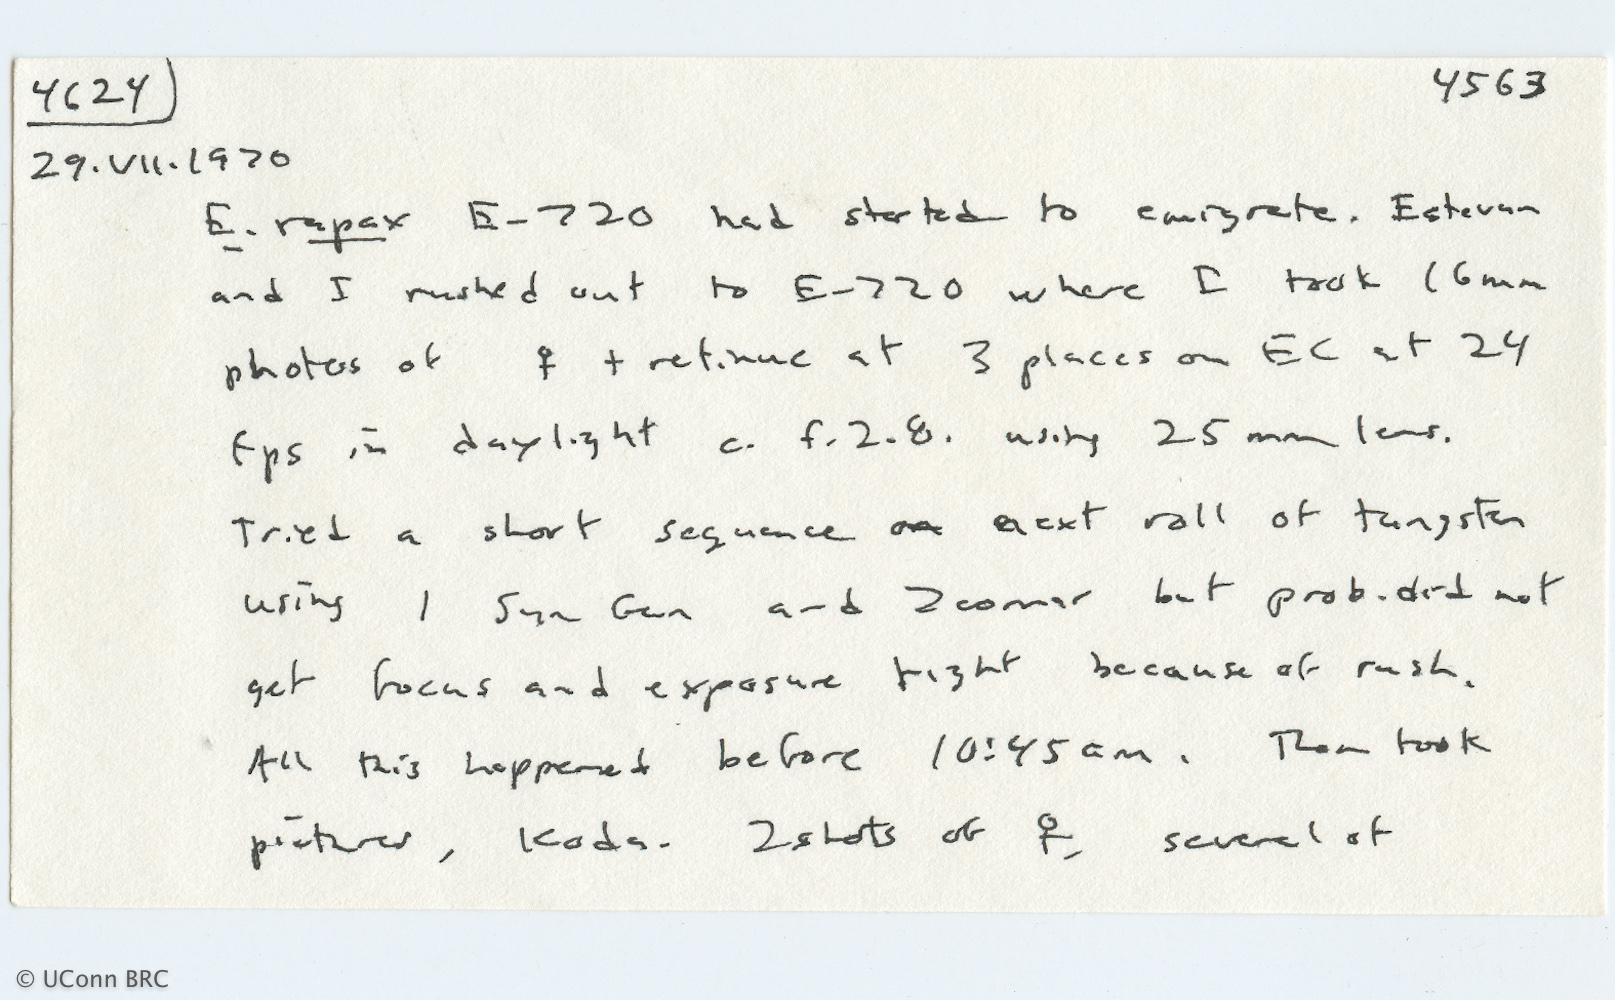 4624 4563
29.VII.1970
E. rapax E-720 had started to emigrate. Estevan
and I rushed out to E-720 where I took 16mm
photos of ♀ + retinue at 3 places on EC at 24
fps in daylight c. f.2.8. using 25 mm lens.
Tried a short sequence on next roll of tungsten
using 1 Syn Gun and Zoomar but prob. did not
get focus and exposure right because of rush.
All this happened before 10:45 am. Then took
pictures, Koda. 2 shots of ♀, several of
© UConn BRC